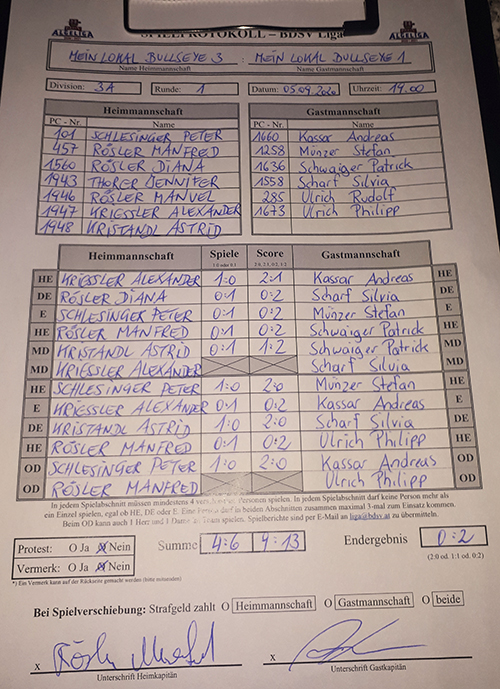 SPIELPROTOKOLL – BDSV Liga
MEIN LOKAL BULLSEYE 3 : MEIN LOKAL BULLSEYE 1
Name Heimmannschaft Name Gastmannschaft
Division: 3A Runde: 1 Datum: 05.09.2020 Uhrzeit: 19.00
Heimmannschaft Gastmannschaft
PC - Nr. Name PC - Nr. Name
101 SCHLESINGER PETER 1660 Kassar Andreas
457 RÖSLER MANFRED 1258 Münzer Stefan
1560 RÖSLER DIANA 1636 Schwaiger Patrick
1943 THORER JENNIFER 1558 Scharf Silvia
1946 RÖSLER MANUEL 285 Ulrich Rudolf
1947 KRIESSLER ALEXANDER 1673 Ulrich Philipp
1948 KRISTANDL ASTRID
Heimmannschaft Spiele Score Gastmannschaft
1:0 oder 0:1 2:0, 2:1, 0:2, 1:2
HE KRIESSLER ALEXANDER 1:0 2:1 Kassar Andreas HE
DE RÖSLER DIANA 0:1 0:2 Scharf Silvia DE
E SCHLESINGER PETER 0:1 0:2 Münzer Stefan E
HE RÖSLER MANFRED 0:1 0:2 Schwaiger Patrick HE
MD KRISTANDL ASTRID 0:1 1:2 Schwaiger Patrick MD
MD KRIESSLER ALEXANDER Scharf Silvia MD
HE SCHLESINGER PETER 1:0 2:0 Münzer Stefan HE
E KRIESSLER ALEXANDER 0:1 0:2 Kassar Andreas E
DE KRISTANDL ASTRID 1:0 2:0 Scharf Silvia DE
HE RÖSLER MANFRED 0:1 0:2 Ulrich Philipp HE
OD SCHLESINGER PETER 1:0 2:0 Kassar Andreas OD
OD RÖSLER MANFRED Ulrich Philipp OD
In jedem Spielabschnitt müssen mindestens 4 verschiedene Personen spielen. In jedem Spielabschnitt darf keine Person mehr als
ein Einzel spielen, egal ob HE, DE oder E. Eine Person darf in beiden Abschnitten zusammen maximal 3-mal zum Einsatz kommen.
Beim OD kann auch 1 Herr und 1 Dame im Team spielen. Spielberichte sind per E-Mail an liga@bdsv.at zu übermitteln.
Protest: O Ja O Nein Summe 4:6 9:13 Endergebnis 0:2
Vermerk: O Ja O Nein (2:0 od. 1:1 od. 0:2)
*) Ein Vermerk kann auf der Rückseite gemacht werden (bitte
Bei Spielverschiebung: Strafgeld zahlt O Heimmannschaft O Gastmannschaft O beide
x x
Unterschrift Heimkapitän Unterschrift Gastkapitän